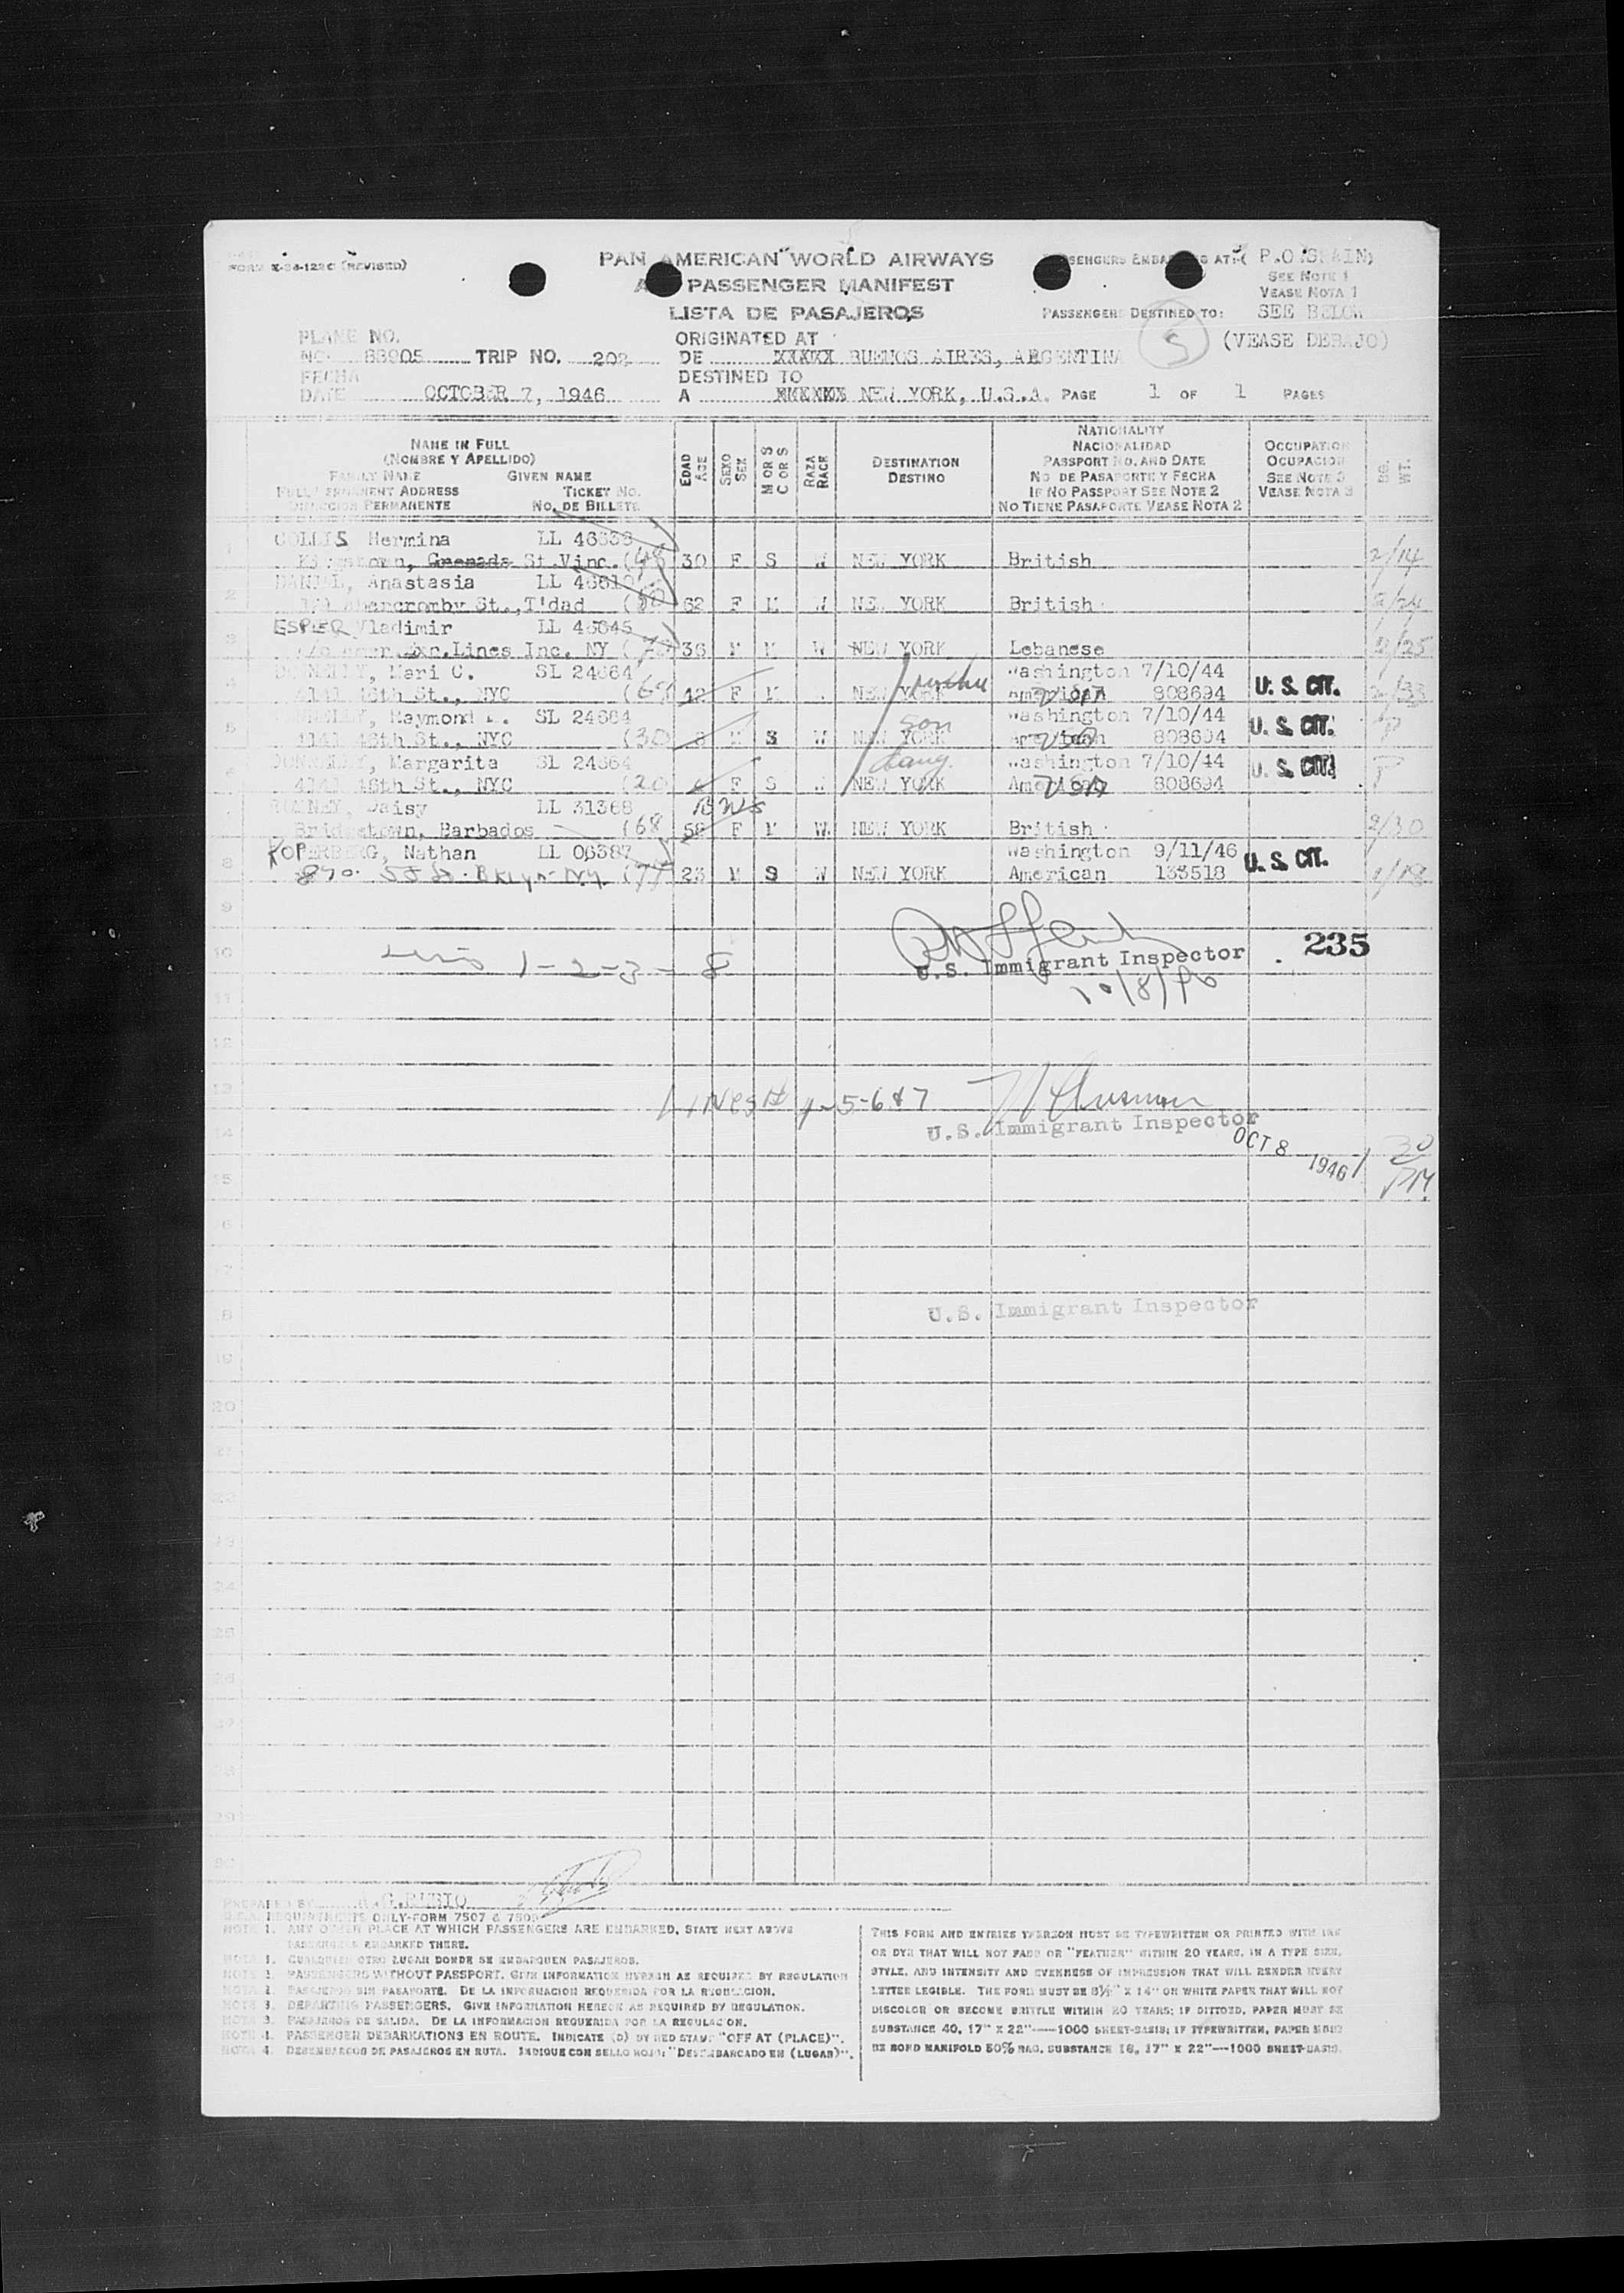 FORM X-34-122C (REVISED)
PAN AMERICAN WORLD AIRWAYS
PASSENGER MANIFEST
LISTA DE PASAJEROS
AT: ( P.O.SPAIN)
SEE NOTE 1
VEASE NOTA 1
PASSENGERS DESTINED TO: SEE BELOW
(VEASE DEBAJO)
5
PLANE NO.
NO. 88905 TRIP NO. 202
ORIGINATED AT
DE XXXXX BUENOS AIRES, ARGENTINA
FECHA
DATE OCTOBER 7, 1946
DESTINED TO
A XXXXXX NEW YORK, U.S.A. PAGE 1 OF 1 PAGES
NAME IN FULL
(NOMBRE Y APELLIDO)
FAMILY NAME GIVEN NAME
FULL PERMANENT ADDRESS TICKET NO.
DIRECCION PERMANENTE NO. DE BILLETE
EDAD AGE
SEXO SEX
M OR S C OR S
RAZA RACE
DESTINATION
DESTINO
NATIONALITY
NACIONALIDAD
PASSPORT NO. AND DATE
NO DE PASAPORTE Y FECHA
IF NO PASSPORT SEE NOTE 2
NO TIENE PASAPORTE VEASE NOTA 2
OCCUPATION
OCUPACION
SEE NOTE 3
VEASE NOTA 3
BG. WT.
1 COLLIS Hermina LL 46636
Kingstown, Grenada St.Vinc. (48 30 F S W NEW YORK British 2/14
2 DANIEL, Anastasia LL 46619
Abercromby St.,T'dad 62 F M W NEW YORK British 2/24
3 ESPIER Vladimir LL 46645
Lines Inc. NY 36 M M W NEW YORK Lebanese 2/25
4 DONNELLY, Mari C. SL 24664 Washington 7/10/44
4141 46th St., NYC 42 F M NEW YORK American USA 808694 U. S. CIT. 2/33
5 DONNELLY, Raymond SL 24664 son Washington 7/10/44
4141 46th St., NYC (30 M S W NEW YORK American USA 808694 U. S. CIT.
6 DONNELLY, Margarita SL 24664 daug. Washington 7/10/44
4141 46th St., NYC (20 F S NEW YORK American USA 808694 U. S. CIT.
7 Daisy LL 31368 BWs
Bridgetown, Barbados (68 58 F M W NEW YORK British 2/30
8 KOPERBERG, Nathan LL 06387 Washington 9/11/46
Bklyn NY (77 23 M S W NEW YORK American 133518 U. S. CIT. 1/18
9
10 1-2-3-8
U.S. Immigrant Inspector 235
10/8/46
11
12
13 Lines # 4-5-6&7
14 U.S. Immigrant Inspector
OCT 8 1946 1 30 PM
15
16
17
18 U.S. Immigrant Inspector
19
20
21
22
23
24
25
26
27
28
29
30
PREPARED BY A.G.RUBIO
REQUIREMENTS ONLY-FORM 7507 & 7508
NOTE 1. ANY OTHER PLACE AT WHICH PASSENGERS ARE EMBARKED, STATE NEXT ABOVE
PASSENGERS EMBARKED THERE.
NOTA 1. CUALQUIER OTRO LUGAR DONDE SE EMBARQUEN PASAJEROS.
NOTE 2. PASSENGERS WITHOUT PASSPORT. GIVE INFORMATION HEREIN AS REQUIRED BY REGULATION
NOTA 2. PASAJEROS SIN PASAPORTE. DE LA INFORMACION REQUERIDA POR LA REGULACION.
NOTE 3. DEPARTING PASSENGERS. GIVE INFORMATION HEREON AS REQUIRED BY REGULATION.
NOTA 3. PASAJEROS DE SALIDA. DE LA INFORMACION REQUERIDA POR LA REGULACION.
NOTE 4. PASSENGER DEBARKATIONS EN ROUTE. INDICATE (D) BY RED STAMP "OFF AT (PLACE)".
NOTA 4. DESEMBARCOS DE PASAJEROS EN RUTA. INDIQUE CON SELLO ROJO: "DESEMBARCADO EN (LUGAR)".
THIS FORM AND ENTRIES THEREON MUST BE TYPEWRITTEN OR PRINTED WITH INK
OR DYE THAT WILL NOT FADE OR "FEATHER" WITHIN 20 YEARS, IN A TYPE SIZE,
STYLE, AND INTENSITY AND EVENNESS OF IMPRESSION THAT WILL RENDER EVERY
LETTER LEGIBLE. THE FORM MUST BE 8½" X 14" ON WHITE PAPER THAT WILL NOT
DISCOLOR OR BECOME BRITTLE WITHIN 20 YEARS; IF DITTOED, PAPER MUST BE
SUBSTANCE 40, 17" X 22"—1000 SHEET-BASIS; IF TYPEWRITTEN, PAPER MUST
BE BOND MANIFOLD 50% RAG, SUBSTANCE 16, 17" X 22"—1000 SHEET-BASIS.